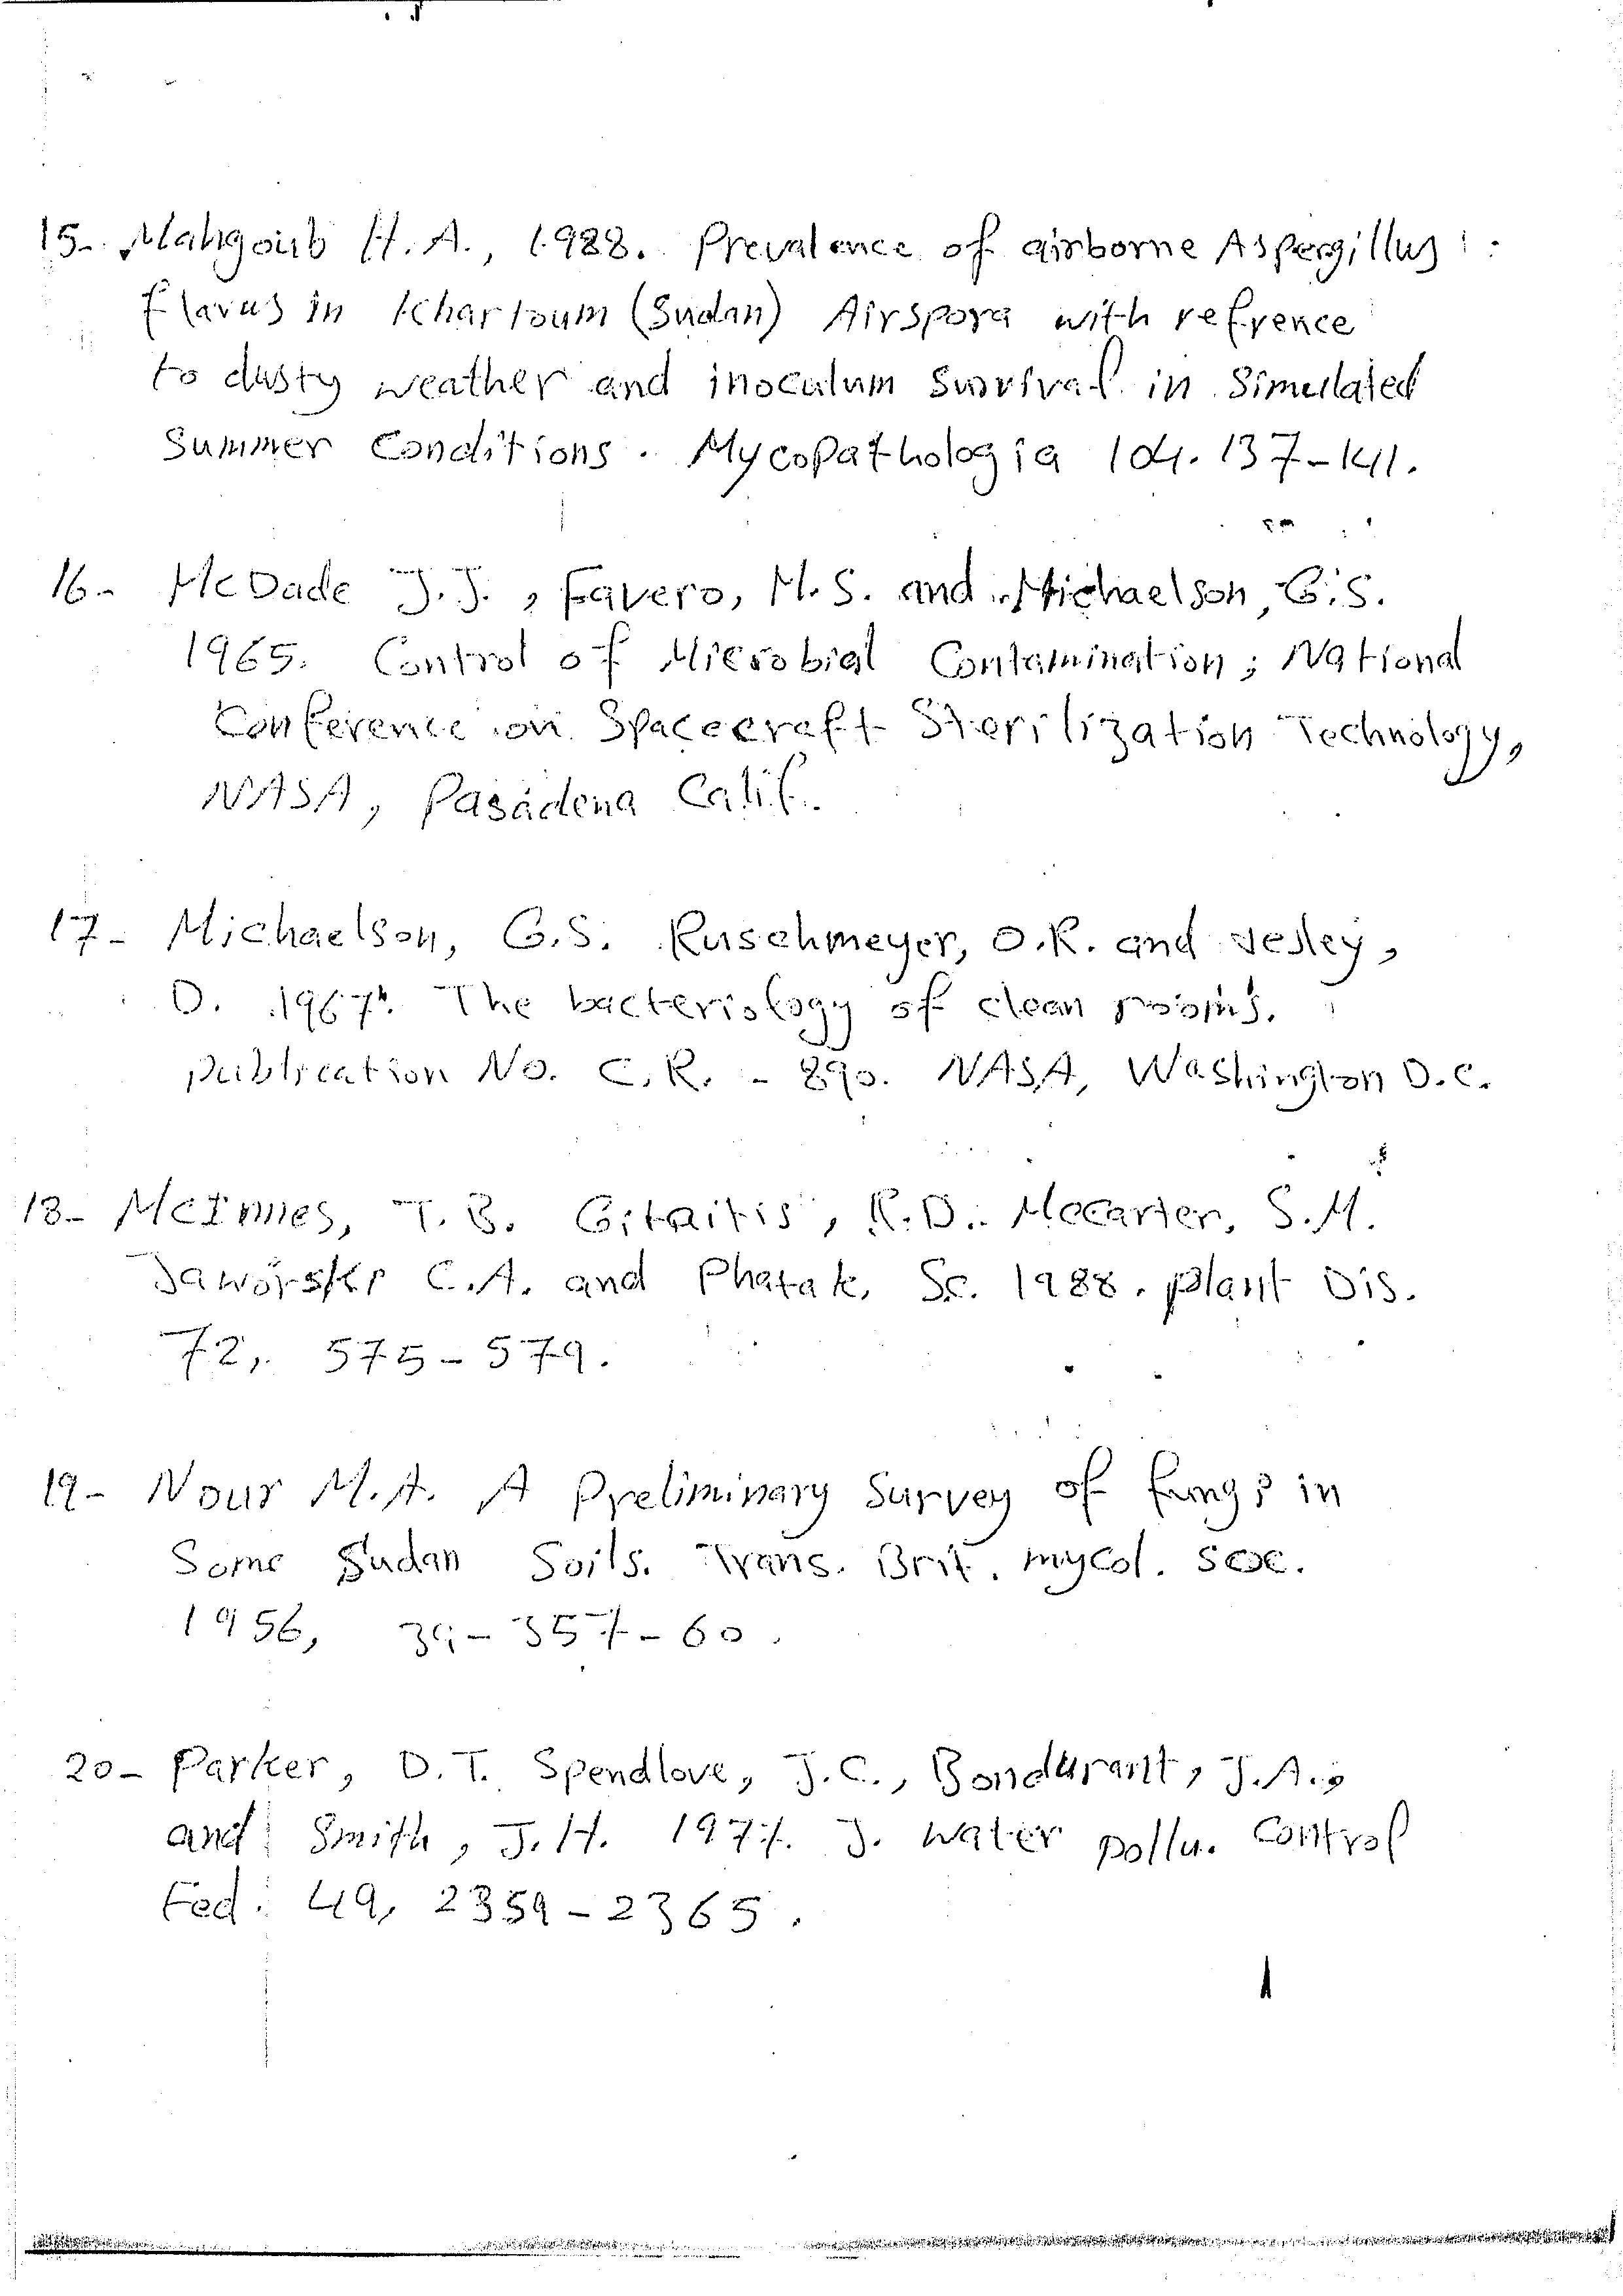 15- Mahgoub H. A., 1988. Prevalence of airborne Aspergillus
flavus in Khartoum (Sudan) Airspora with refrence
to dusty weather and inoculum survival in simulated
Summer Conditions. Mycopathologia 104. 137-141.
16- McDade J.J., Favero, M.S. and Michaelson, G.S.
1965. Control of Microbial Contamination; National
Conference on Spacecraft Sterilization Technology,
NASA, Pasadena Calif.
17- Michaelson, G.S. Ruschmeyer, O.R. and Vesley,
D. 1967. The bacteriology of clean rooms.
publication No. C.R. - 890. NASA, Washington D.C.
18- McInnes, T. B. Gitaitis, R.D. McCarter, S.M.
Jaworski C.A. and Phatak, Sc. 1988. plant Dis.
72, 575-579.
19- Nour M.A. A Preliminary Survey of fungi in
Some Sudan Soils. Trans. Brit. mycol. soc.
1956, 39-357-60.
20- Parker, D.T. Spendlove, J.C., Bondurant, J.A.,
and Smith, J.H. 1977. J. Water pollu. Control
Fed. 49, 2359-2365.